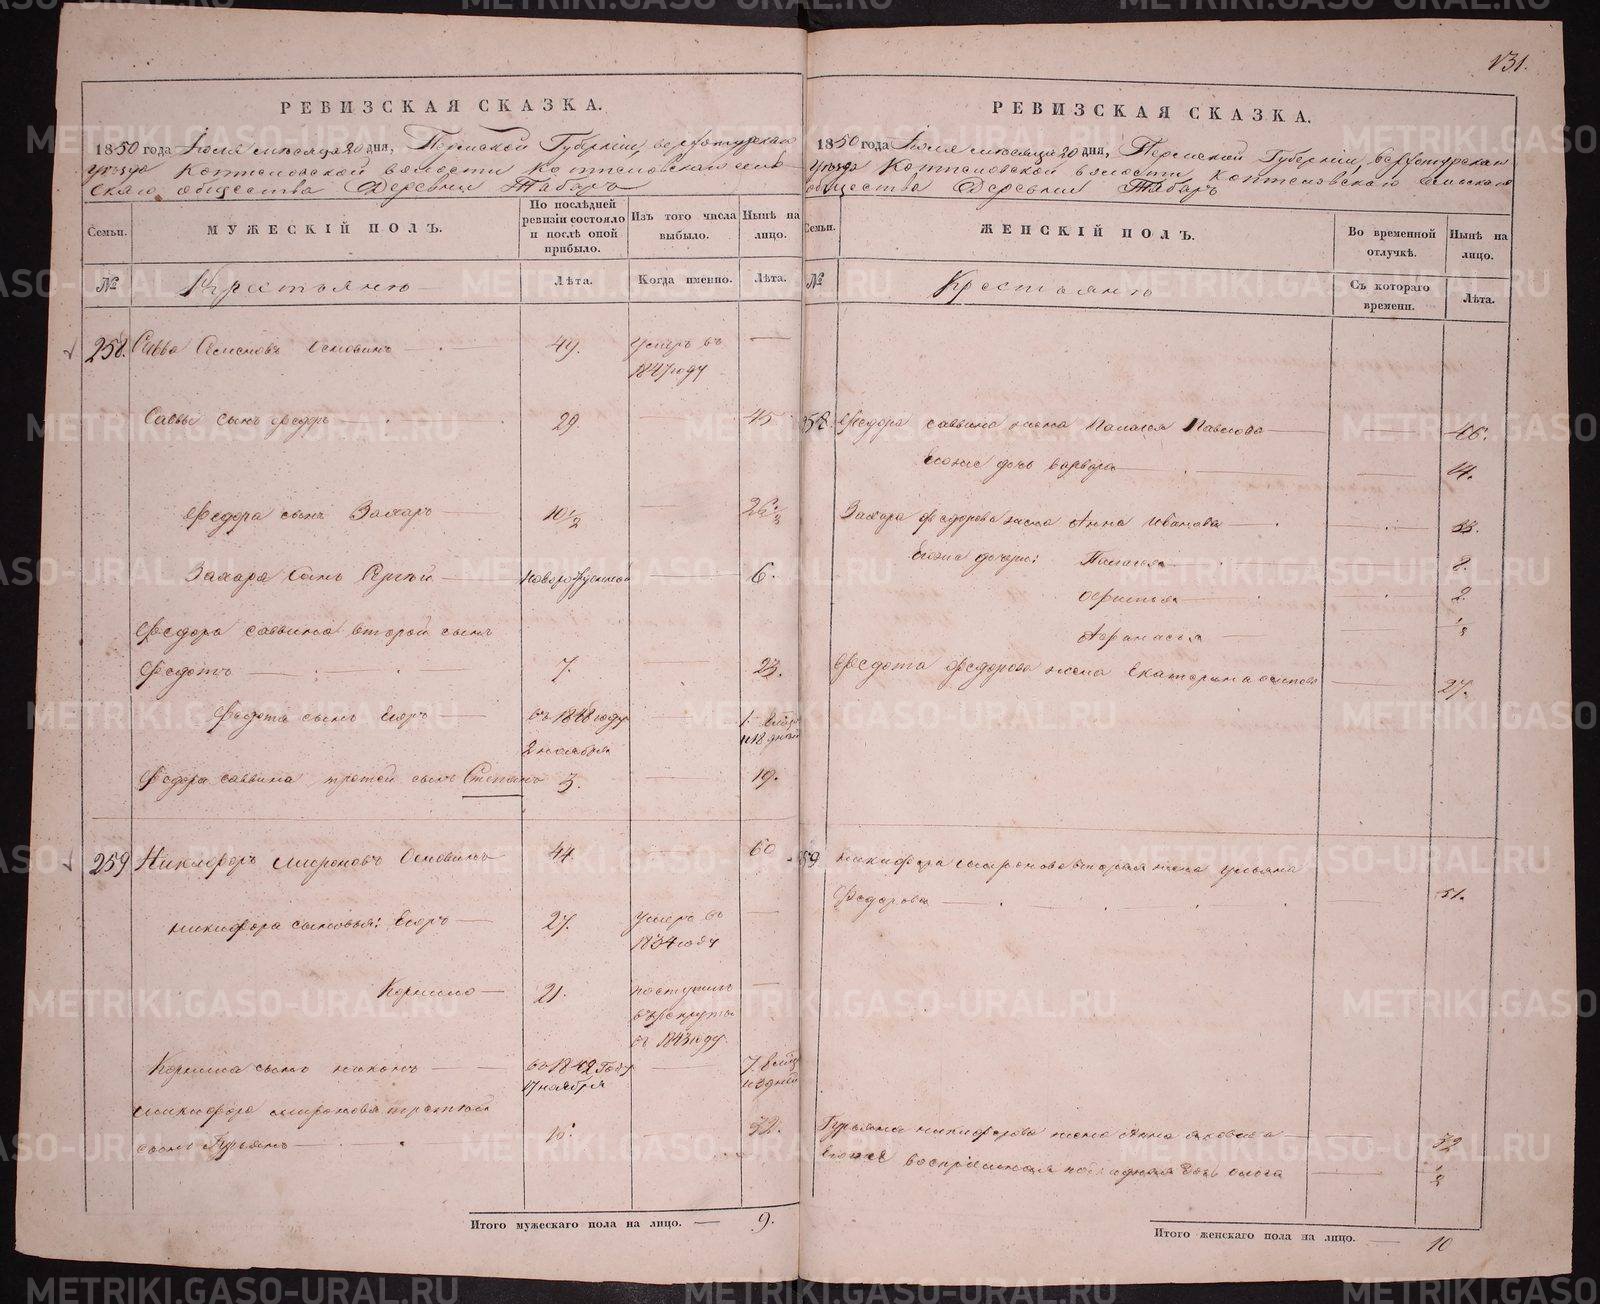 131.
РЕВИЗСКАЯ СКАЗКА.
1850 года Июля месяца 20 дня, Пермской Губернии, верхотурскаго
уезда Коптеловской волости Коптеловскаго сель-
скаго общества Деревни Табаръ
Семьи.
МУЖЕСКІЙ ПОЛЪ.
По послѣдней ревизіи состояло и послѣ оной прибыло.
Изъ того числа выбыло.
Нынѣ на лицо.
№
Крестьяне
Лѣта.
Когда именно.
Лѣта.
258. Савва Осиповъ — 49. Умеръ въ 1847 году —
Саввы сынъ Федоръ 29. — 45
Федора сынъ Захаръ — 10 1/2 — 26 1/2
Захара сынъ — новорожденной — 6.
Федора саввина второй сынъ
Федотъ — 7. — 23.
Федота сынъ Егоръ — въ 1848 году 2 ноября — 1. 8 мѣс и 18 дней
Федора саввина третей сынъ Степанъ 3. — 19.
259 Никифоръ мироновъ 44. — 60
никифора сыновья: Егоръ — 27. Умеръ въ 1834 году —
Корнило — 21. поступилъ в рекруты въ 1843 году. —
Корнила сынъ никонъ — въ 1842 Году 17 ноября — 7. 8 мѣс и 3 дней
никифора миронова третей
сынъ Гурьянъ — 16. 32.
Итого мужескаго пола на лицо. — 9.
РЕВИЗСКАЯ СКАЗКА.
1850 года Июля месяца 20 дня, Пермской Губернии, верхотурскаго
уезда Коптеловской волости Коптеловскаго сельскаго
общества Деревни Табаръ
Семьи.
ЖЕНСКІЙ ПОЛЪ.
Во временной отлучкѣ.
Нынѣ на лицо.
№
Крестьяне
Съ котораго времени.
Лѣта.
258. Федора саввина жена Палагея Павлова — 46.
Его же дочь варвара — 14.
Захара федорова жена Анна Иванова — 33.
Его же дочери: Палагея 8.
2.
Афанасья — 1/2
Федота федорова жена Екатерина осипова — 27.
259. никифора миронова вторая жена ульяна
Федорова — 51.
Гурьяна никифорова жена Анна яковлева — 32
1/2
Итого женскаго пола на лицо. — 10
METRIKI.GASO-URAL.RU